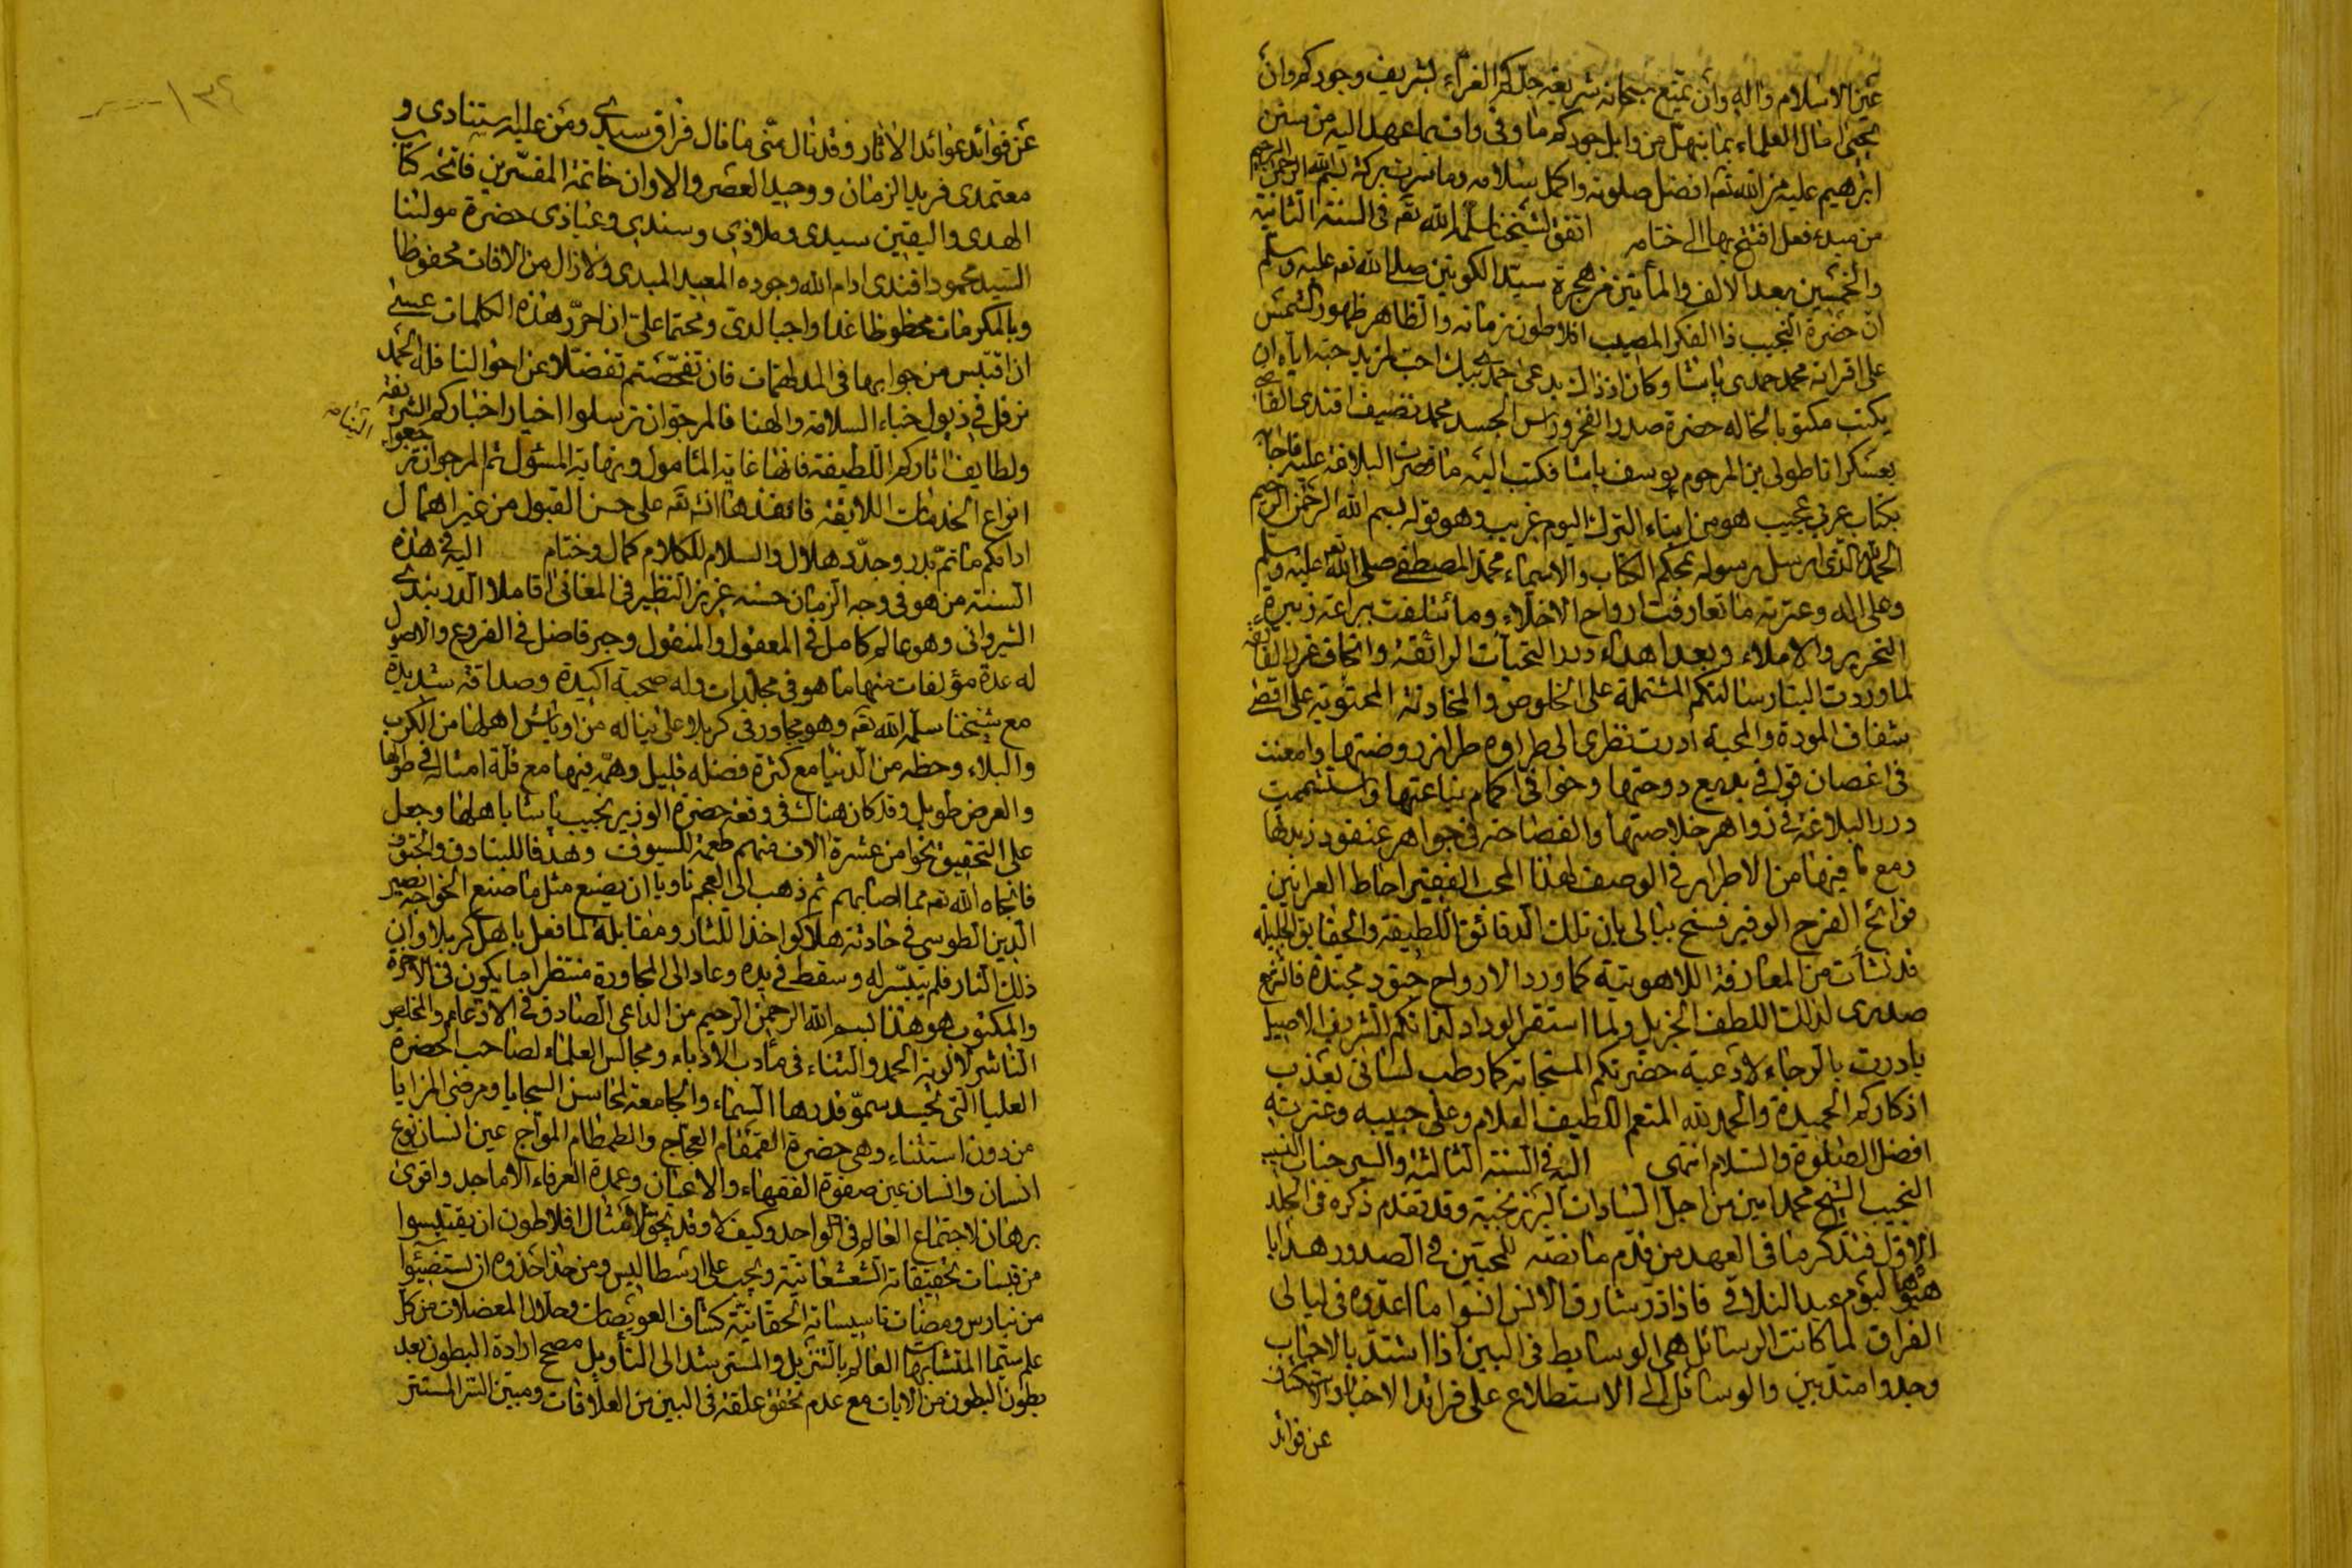 عين الاسلام واله وان يمتع سبحانه شريعة جدكم الغراء بشريف وجودكم وان
يحيى امال العلماء بما ينهل من وابل جودكم ما وفى واف بما عهد اليه من سنن
ابراهيم عليه من الله تعالى افضل صلوته واكمل سلامه وما سرت بركة بسم الله الرحمن الرحيم
من مبدء فعل افتتح بها الى ختامه اتفق لشيخنا سلمه الله تعالى فى السنة الثانية
والخمسين بعد الالف والمأتين من هجرة سيد الكونين صلى الله تعالى عليه وسلم
ان حضرة النجيب ذا الفكر المصيب افلاطون زمانه والظاهر ظهور الشمس
على اقرانه محمد حمدى باشا وكان اذ ذاك يدعى احمد بيك احب لمزيد حبه اياه ان
يكتب مكتوبا لخاله حضرة صدر الفخر وراس الجسد محمد نضيف افندى القاضى
بعسكر اناطولى بن المرحوم يوسف باشا فكتب اليه ما قصرت البلاغة عليه فاجابه
بكتاب عربى عجيب هو من ابناء الترك اليوم غريب وهو قوله بسم الله الرحمن الرحيم
الحمد لله الذى ارسل رسوله بمحكم الكتاب والاسماء محمد المصطفى صلى الله تعالى عليه وسلم
وعلى اله وعترته ما تعارفت ارواح الاخلاء وما ائتلفت براعة زبيرة
التحرير والاملاء وبعد اهداء درر التحيات الرائقة واتحاف غرر الفائقة
لما وردت الينا رسالتكم المشتملة على الخلوص والمخادنة المحتوية على اقصى
شفاف المودة والمحبة ادرت نظرى الى طراوة طراز روضتها وامعنت
فى اغصان قول فى بديع دوحتها وخوافى اكمام يناعتها واستشممت
درر البلاغة فى زواهر خلاصتها والفصاحة فى جواهر عنقود زبدتها
ومع ما فيها من الاطراء فى الوصف لهذا المحب الفقير احاط العرانين
فوائح الفرح الوفير فسنح ببالى بان تلك الدقائق اللطيفة والحقايق الجليلة
قد نشأت من المعارفة اللاهوتية كما ورد الارواح جنود مجندة فانشرح
صدرى لذلك اللطف الجزيل ولما استقر الوداد لذاتكم الشريف الاصيل
بادرت بالرجاء لادعية حضرتكم المستجابة كما رطب لسانى بعذب
اذكاركم الحميدة والحمد لله المنعم اللطيف العلام وعلى حبيبه وعترته
افضل الصلوة والسلام انتهى اليه فى السنة الثالثة والستين جناب النسيب
النجيب الشيخ محمد امين من اجل السادات البرزنجية وقد تقدم ذكره فى الجلد
الاول فتذكر ما فى العهد من قدم ما نصه للمحبين فى الصدور هدايا
هيؤها ليوم عيد التلاقى فاذا ذر شارق الانس انسوا ما اعدوه فى ليالى
الفراق لما كانت الرسائل هى الوسايط فى البين اذا اشتد بالاحباب
وجدوا متد بين والوسائل الى الاستطلاع على فرائد الاخبار والاستكشاف
عن فوائد
١٣٤
عن فوائد عوائد الاثار وقد نال منى ما نال فراق سيدى ومن عليه استنادى و
معتمدى فريد الزمان ووحيد العصر والاوان خاتمة المفسرين فاتحة كتاب
الهدى واليقين سيدى وملاذى وسندى وعياذى حضرة مولنا
السيد محمود افندى ادام الله وجوده المعيد المبدى ولا زال من الافات محفوظا
وبالمكرمات محظوظا غدا واجبا لدى ومحتما على ان احرر هذه الكلمات عسى
ان اقتبس من جوابها فى المدلهمات فان تفحصتم تفضلا عن احوالنا فلله الحمد
نرفل فى ذيول خباء السلامة والهنا فالمرجو ان ترسلوا اخبار اخباركم الشريفة
ولطايف اثاركم اللطيفة فانها غاية المأمول ونهاية المسؤل ثم المرجو ان ترجعوا الينا
انواع الخدمات اللايقة فانفذها انه تعالى على حسن القبول من غير اهمال
ادامكم ما تم بدر وجدد هلال والسلام للكلام كمال وختام اليه فى هذه
السنة من هو فى وجه الزمان حسنه عزيز النظير فى المعانى اقا ملا الدربندى
الشيروانى وهو عالم كامل فى المعقول والمنقول وحبر فاضل فى الفروع والاصول
له عدة مؤلفات منها ما هو فى مجلدات وله صحبة اكيدة وصداقة شديدة
مع شيخنا سلمه الله تعالى وهو مجاور فى كربلا على ما يناله من اوباش اهلها من الكرب
والبلاء وحظه من الدنيا مع كثرة فضله قليل وهمه فيها مع قلة امثاله فى طولها
والعرض طويل وقد كان هناك فى وقعة حضرة الوزير نجيب باشا باهلها وجعل
على التحقيق نحوا من عشرة الاف منهم طعمة للسيوف وهدفا للبنادق والحتوف
فانجاه الله تعالى مما اصابهم ثم ذهب الى العجم ناويا ان يصنع مثل ما صنع الخواجه نصير
الدين الطوسى فى حادثة هلاكو اخذا للثار ومقابلة لما فعل باهل كربلا واين
ذلك الثار فلم يتيسر له وسقط فى يده وعاد الى المجاورة منتظرا ما يكون فى الاخرة
والمكتوب هو هذا بسم الله الرحمن الرحيم من الداعى الصادق فى الادعاء والمخلص
الناشر لالوية الحمد والثناء فى مأدب الادباء ومجالس العلماء لصاحب الحضرة
العليا التى تحسد سمو قدرها السماء والجامعة لمحاسن السجايا ومرضى المزايا
من دون استثناء وهى حضرة القمقام العجاج والطمطام المواج عين انسان نوع
انسان وانسان عين صفوة الفقهاء والاعيان وعمدة العرفاء الاماجد واقوى
برهان لاجتماع العالم فى الواحد وكيف لا وقد يحق لامثال افلاطون ان يقتبسوا
من قبسات تحقيقاته الشعشعانية ويجب على ارسطاليس ومن حذا حذوه ان يستضيئوا
من نبارس ومضات تاسيساته الحقانية كشاف العويصات وحلال المعضلات من كل
علم سيما المتشابهات العالم بالتنزيل والمسترشد الى التأويل مصحح ارادة البطون بعد
بطون البطون من الايات مع عدم تحقق علقة فى البين من العلاقات ومبين السر المستتر